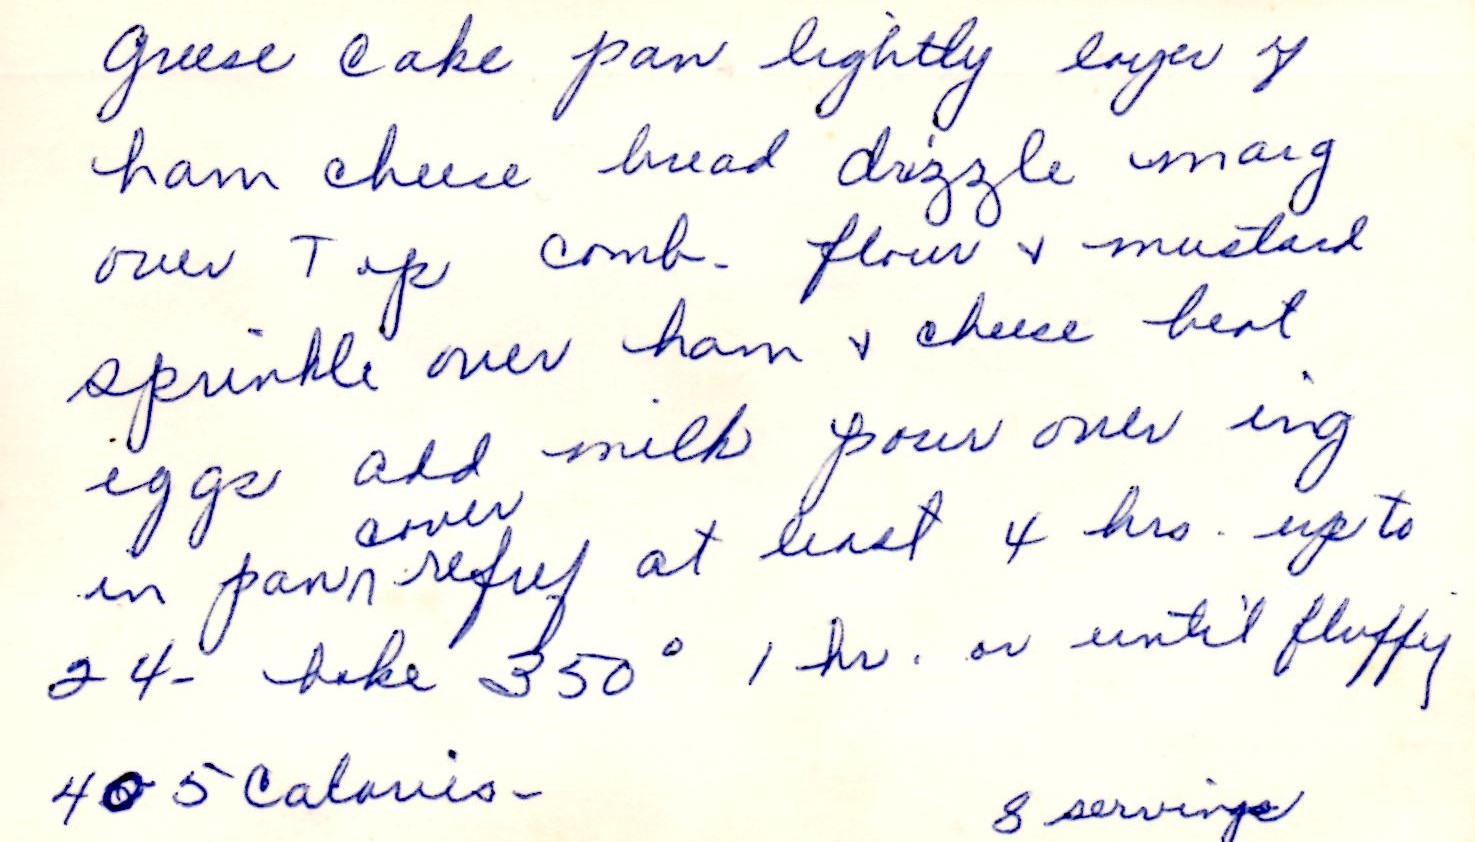 Greese cake pan lightly layer of
ham cheese bread drizzle marg
over Top comb. flour & mustard
sprinkle over ham & cheese beat
eggs add milk pour over ing
cover
in pan refrig at least 4 hrs. up to
24- bake 350° 1 hr. or until fluffy
405 Calories-
8 servings